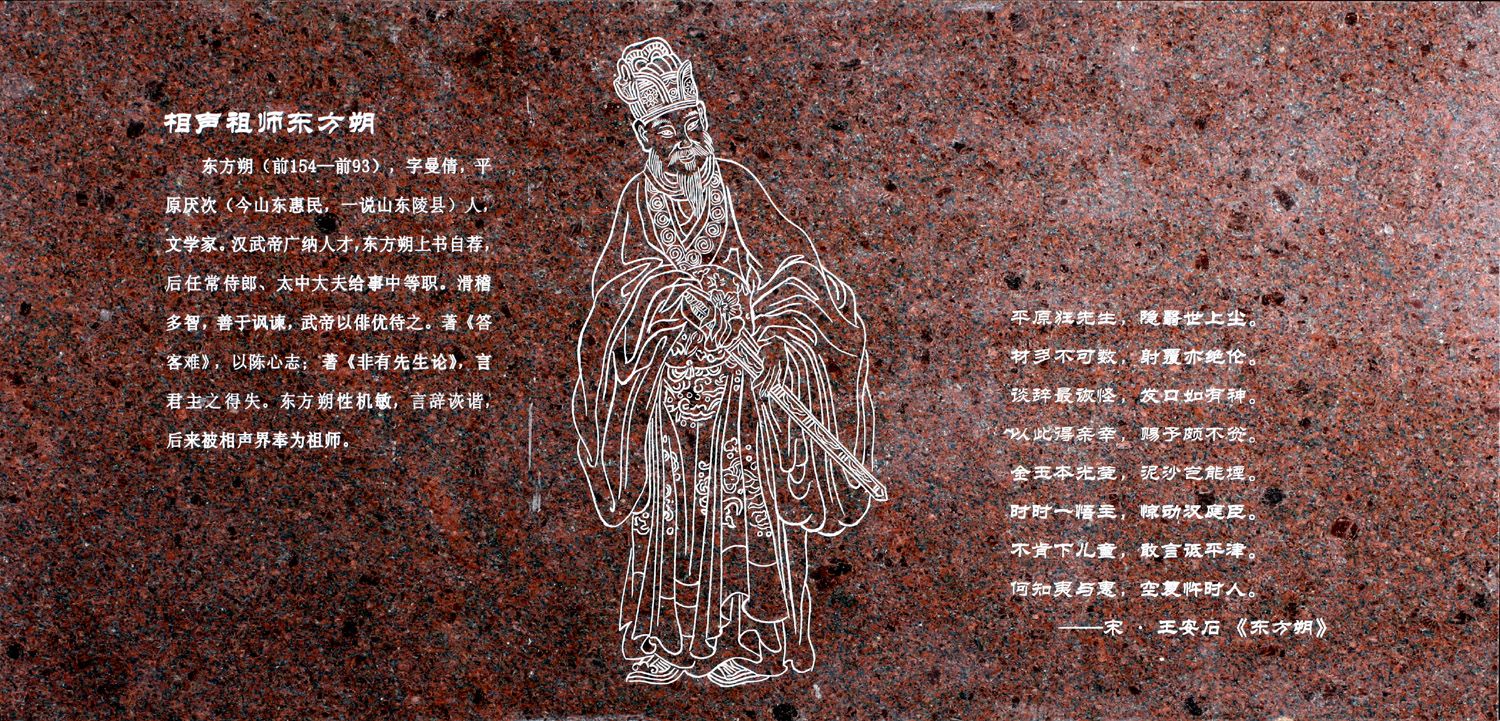 相声祖师东方朔
东方朔（前154—前93），字曼倩，平
原厌次（今山东惠民，一说山东陵县）人，
文学家。汉武帝广纳人才，东方朔上书自荐，
后任常侍郎、太中大夫给事中等职。滑稽
多智，善于讽谏，武帝以俳优待之。著《答
客难》，以陈心志；著《非有先生论》，言
君主之得失。东方朔性机敏，言辞诙谐，
后来被相声界奉为祖师。
平原狂先生，隐翳世上尘。
材多不可数，射覆亦绝伦。
谈辞最诙怪，发口如有神。
以此得亲幸，赐予颇不贫。
金玉本光莹，泥沙岂能堙。
时时一悟主，惊动汉庭臣。
不肯下儿童，敢言诋平津。
何知夷与惠，空复忤时人。
——宋 · 王安石《东方朔》